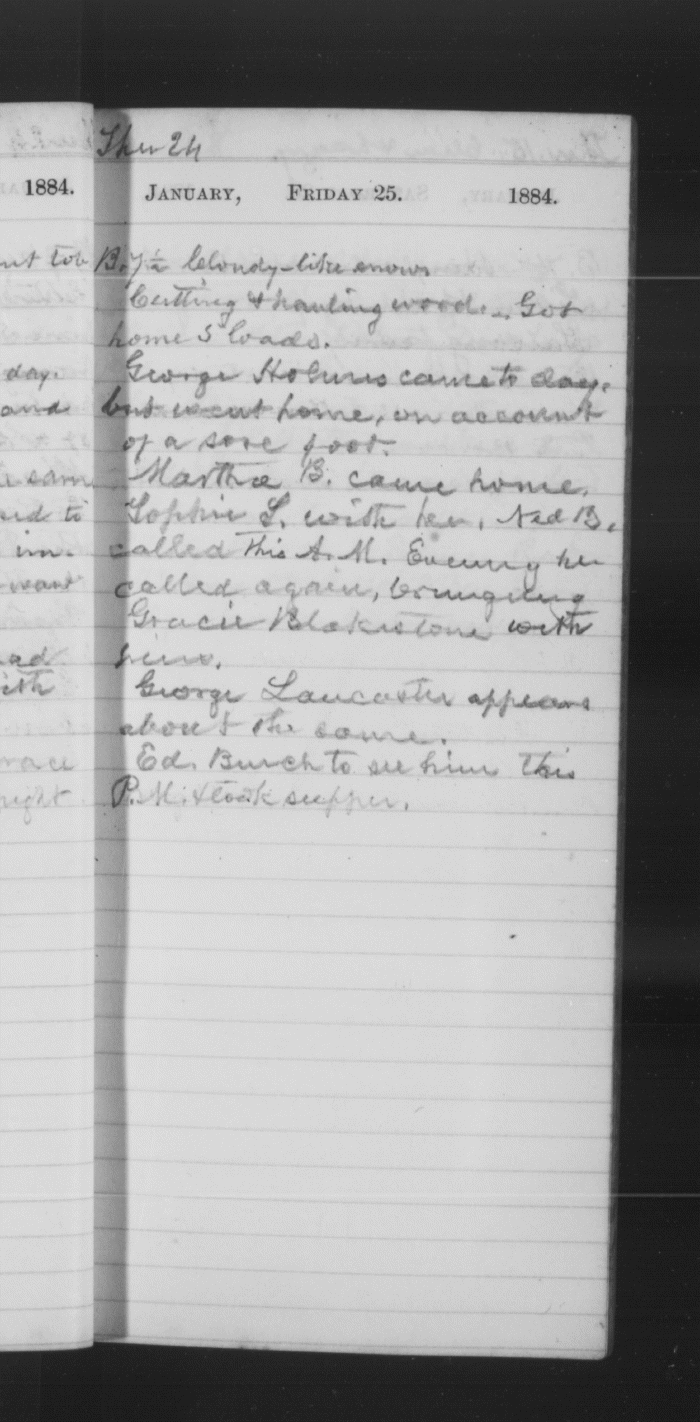 1884.
nt tob
day.
and
e same
ed to
im.
want
ad
ith
race
night
Ther 24
January, Friday 25. 1884.
B. 7½ Cloudy-like snow
Cutting & hauling wood. Got
home 5 loads.
George Holmes came to day.
but went home, on account
of a sore foot.
Martha B. came home.
Sophie L. with her. Ned B.
called this A.M. Evening he
called again, bringing
Gracie Blakistone with
him.
George Lancaster appears
about the same.
Ed. Burch to see him this
P.M. & took supper.